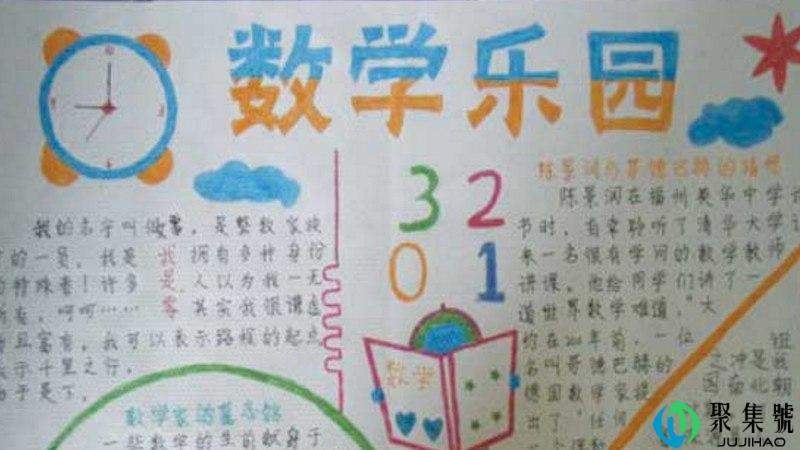 数学乐园
3 2
0 1
我的名字叫做零，是整数家族
的一员，我是 拥有多种身份
的特殊者！许多 人以为我一无
所有，呵呵…… 其实我很谦虚
且富有，我可以表示路程的起点
示千里之行，
于是下。
我
是
零
数学家的墓志铭
一些数学的生前献身于
陈景润与哥德巴赫的猜想
陈景润在福州英华中学
节时，有幸聆听了清华大学
来一名很有学问的数学教师
讲课。他给同学们讲了一
道世界数学难道，"大
约在200年前，一位
名叫哥德巴赫的
德国数学家提
出了"任何
一个
数学
祖
冲是我
国南北朝
聚集號
JUJIHAO